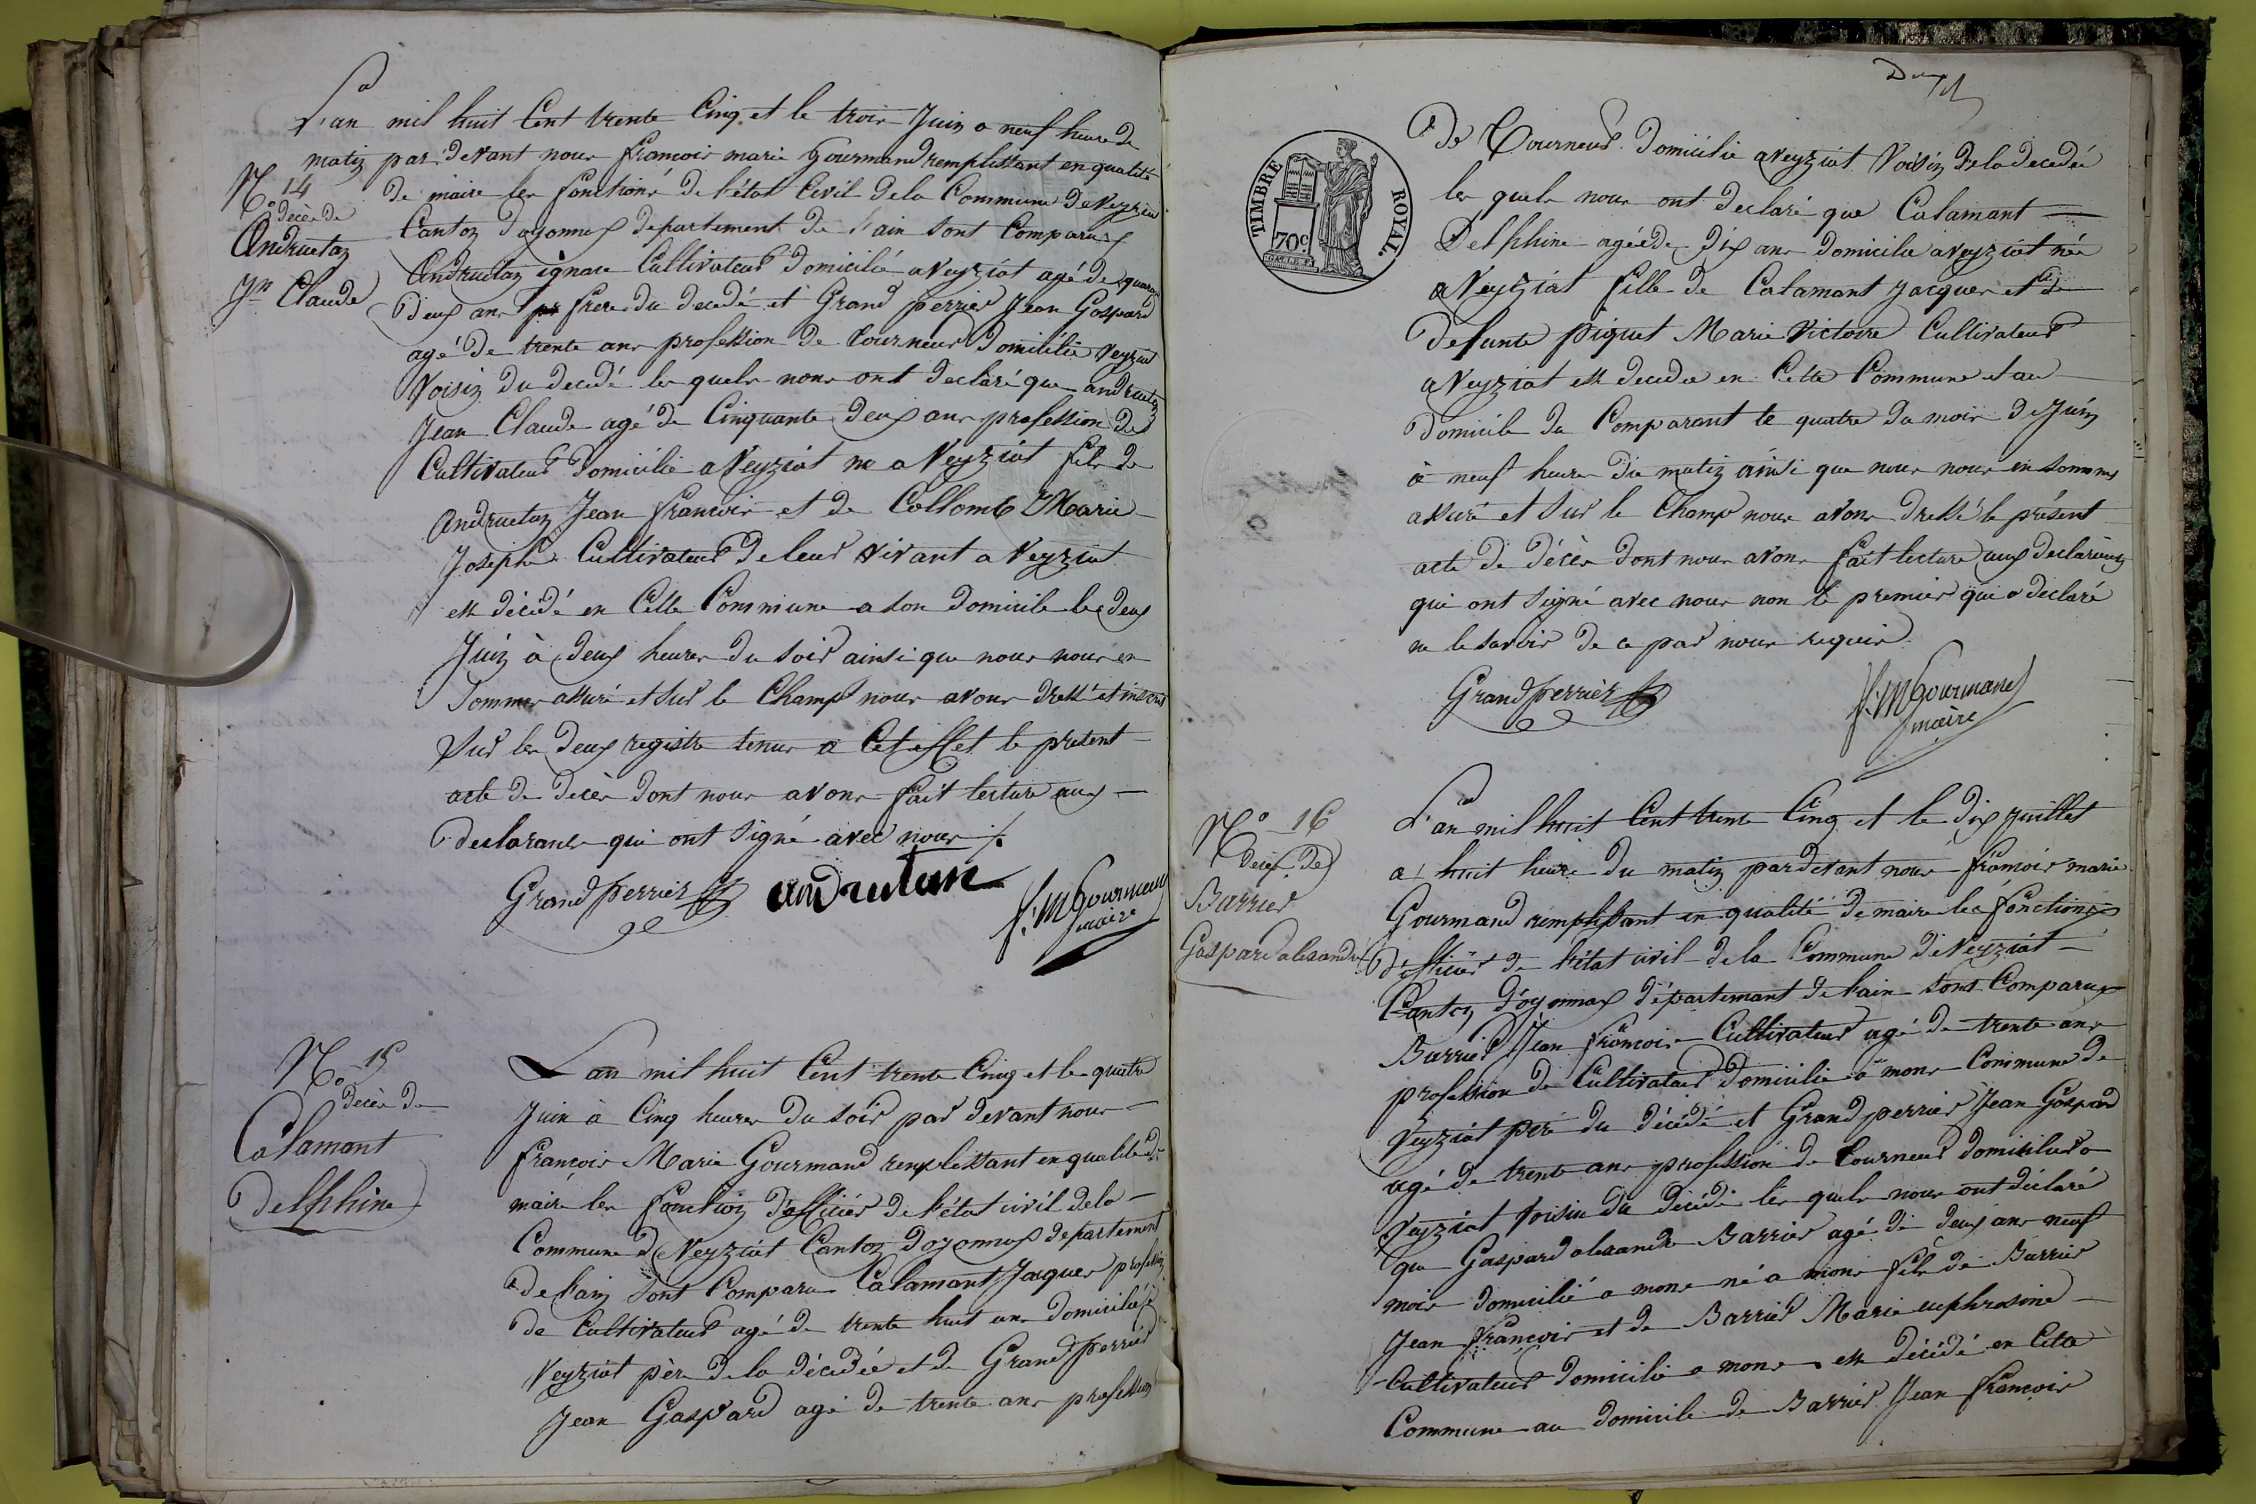 L'an mil huit Cent trente Cinq et le trois Juin a neuf heure de
matin par devant nous francois marie Gourmand remplissant en qualité
de maire les fonctions de l'état Civil de la Commune de Veyziat
Canton d'oyonnax departement de l'ain sont Comparus
N.o 14
décès de
Andruetan
Jn Claude
Andruetan ignace Cultivateur domicilié a Veyziat agé de quarante
Deux ans frere du decedé et Grand perrier Jean Gaspard
agé de trente ans profession de tourneur domicilié Veyziat
Voisin du decedé les quels nous ont declaré que andruetan
Jean Claude agé de Cinquante deux ans profession de
Cultivateur domicilié a Veyziat né a Veyziat fils de
Andruetan Jean francois et de Collomb Marie
Josephe Cultivateur de leur vivant a Veyziat
est décédé en Cette Commune a son domicile le deux
Juin à deux heures du soir ainsi que nous nous en
Sommes assuré et sur le Champ nous avons dressé et inscris
Sur les deux registre tenus a Cet effet le present
acte de décès dont nous avons fait lecture aux
declarants qui ont signé avec nous ./.
Grandperrier andrutan f. m Gourmand
maire
N.o 15
décès de
Calamant
Delphine
L'an mil huit Cent trente Cinq et le quatre
Juin à Cinq heures du soir par devant nous
francois Marie Gourmand remplissant en qualité de
maire les fonction d'officier de l'état civil de la
Commune de Veyziat Canton d'oyonnax departement
de l'ain sont Comparu Calamant Jacques profession
de Cultivateur agé de trente huit ans domicilié
Veyziat père de la décédée et de Grand perrier
Jean Gaspard agé de trente ans profession
TIMBRE ROYAL
70c.
De Tourneur domicilié a Veyziat Voisin de la decedée
les quels nous ont declaré que Calamant
Delphine agée de dix ans domicilié a Veyziat née
a Veyziat fille de Calamant Jacques et de
defunte piquet Marie Victoire Cultivateur
a Veyziat est decedée en Cette Commune et au
domicile du Comparant le quatre du mois de Juin
à neuf heures du matin ainsi que nous nous en sommes
assuré et sur le Champ nous avons dressé le présent
acte de décès dont nous avons fait lecture aux declarants
qui ont signé avec nous non le premier qui a declaré
ne le savoir de ce par nous requis
Grandperrier f. m Gourmand
maire
N.o 16
Decès de
Barrier
Gaspard alexandre
L'an mil huit Cent trente Cinq et le dix juillet
a huit heure du matin par devant nous françois marie
Gourmand remplissant en qualité de maire les fonctions
d'officier de l'état civil de la Commune de Veyziat
Canton d'oyonnax département de l'ain sont Comparus
Barrier Jean françois Cultivateur agé de trente ans
profession de Cultivateur domicilié a mons Commune de
Veyziat père du décédé et Grand perrier Jean Gaspard
agé de trente ans profession de tourneur domicilier a
Veyziat Voisin du décédé les quels nous ont déclaré
que Gaspard alexandre Barrier agé de deux ans neuf
mois domicilié a mons né a mons fils de Barrier
Jean françois et de Barrier Marie euphrosine
Cultivateur domicilié a mons est décédé en Cette
Commune au domicile de Barrier Jean francois